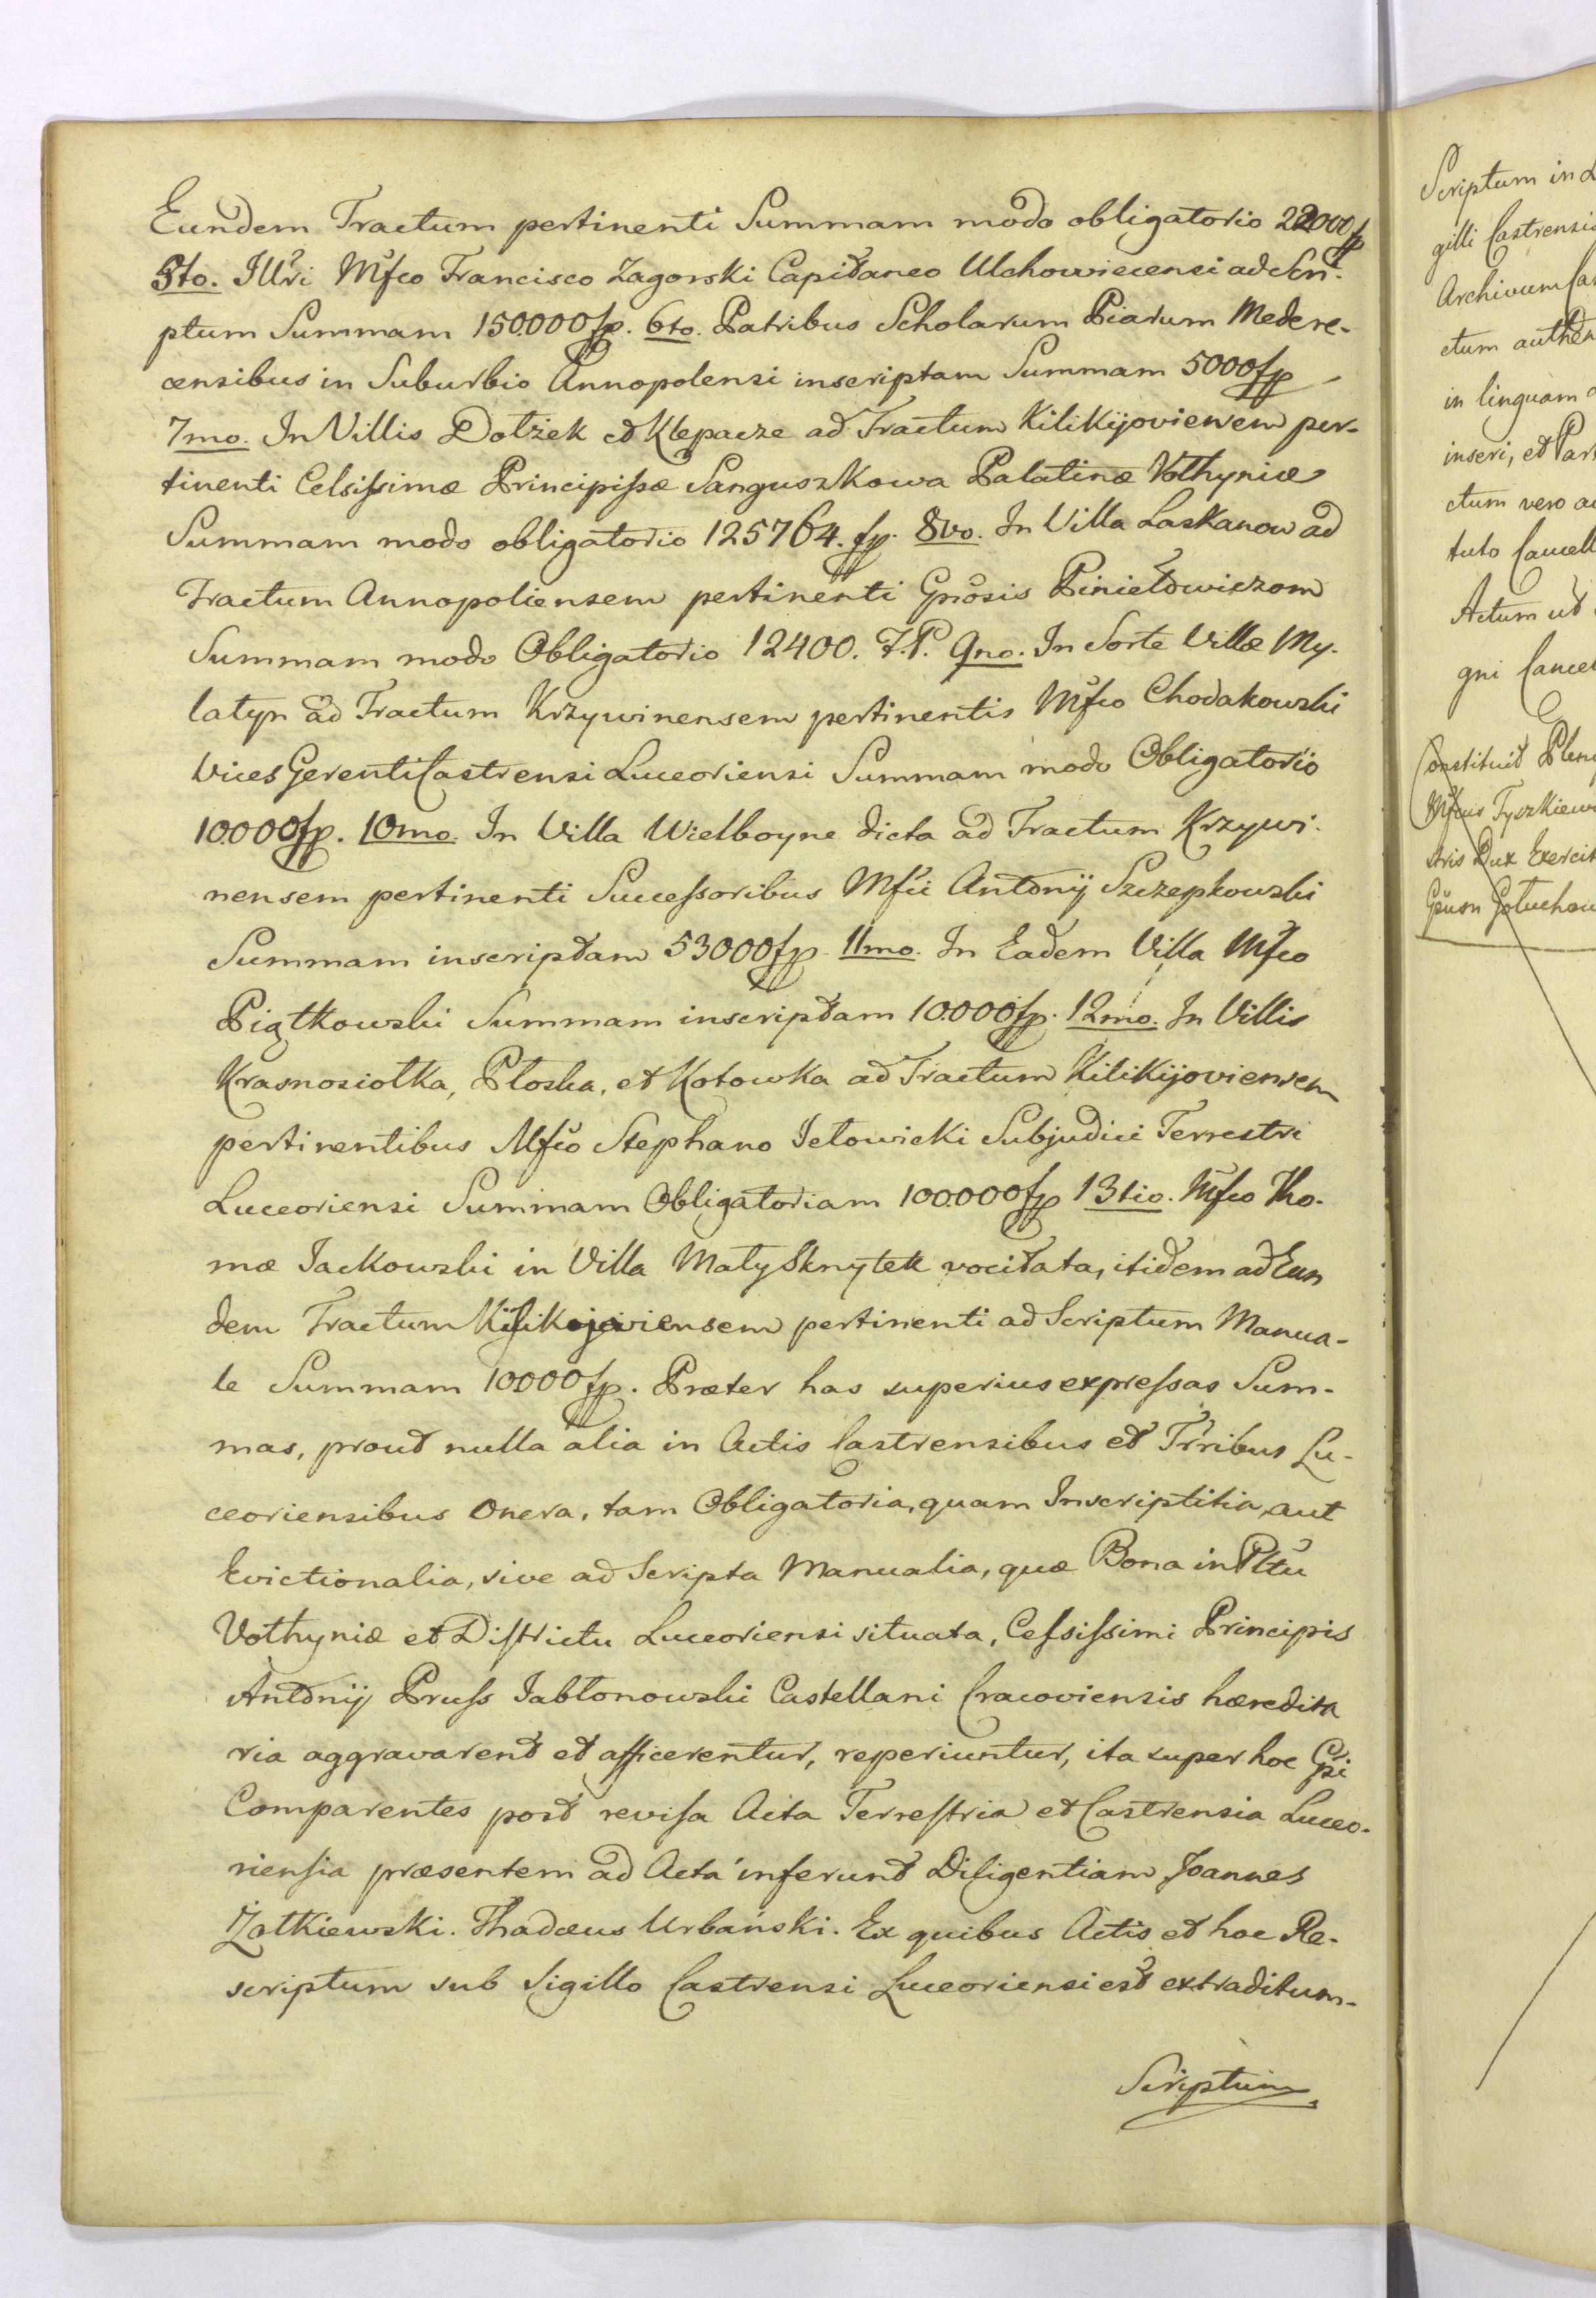 Eundem Tractum pertinenti Summam modo obligatorio 22000 fp
5to. Illri Mfco Francisco Zagorski Capitaneo Uchowiecensi ad Scri-
ptum Summam 150.000 fp. 6to. Patribus Scholarum Piarum Medere-
censibus in Suburbio Annopolensi inscriptam Summam 5000 fp
7mo. In Villis Dołżek et Klepacze ad Tractum Kilikijoviensem per-
tinenti Celsissimæ Principissæ Sanguszkowa Palatinæ Vołhyniæ
Summam modo obligatorio 125764. fp. 8vo. In Villa Laskanow ad
Tractum Annopoliensem pertinenti Gnosis Siniełowiczom
Summam modo Obligatorio 12400. F.P. 9no. In Sorte Villæ My-
latyn ad Tractum Krzywinensem pertinentis Mfco Chodakowski
Vices Gerenti Castrensi Luceoriensi Summam modo Obligatorio
10.000 fp. 10mo. In Villa Wielboyne dicta ad Tractum Krzywi-
nensem pertinenti Successoribus Mfci Antonij Szczepkowski
Summam inscriptam 53000 fp. 11mo. In Eadem Villa Mfco
Piątkowski Summam inscriptam 10.000 fp. 12mo. In Villis
Krasnosiołka, Płoska, et Kotowka ad Tractum Kilikijoviensem
pertinentibus Mfco Stephano Jełowicki Subjudici Terrestri
Luceoriensi Summam Obligatoriam 100.000 fp 13tio. Mfco Tho-
mæ Jackowski in Villa Mały Sknytek vocitata, itidem ad Eun
dem Tractum Kilikijoviensem pertinenti ad Scriptum Manua-
le Summam 10000 fp. Præter has superius expressas Sum-
mas, prout nulla alia in Actis Castrensibus et Trribus Lu-
ceoriensibus Onera, tam Obligatoria, quam Inscriptitia, aut
Evictionalia, sive ad Scripta Manualia, quæ Bona in Pltu
Vołhyniæ et Districtu Luceoriensi situata, Celsissimi Principis
Antonij Pruss Jabłonowski Castellani Cracoviensis hæredita
ria aggravarent et afficerentur, reperiuntur, ita super hoc Gsi
Comparentes post revisa Acta Terrestria et Castrensia Luceo-
riensia præsentem ad Acta inferunt Diligentiam Joannes
Żółkiewski. Thadæus Urbański. Ex quibus Actis et hoc Re-
scriptum sub Sigillo Castrensi Luceoriensi est extraditum-
Scriptum
Scriptum in L
gilli Castrensis
Archivum Ca
ctum authen
in linguam
inseri, et Par
ctum vero a
tuto Cancell
Actum ut
gni Cancel
Constituit Plen
Mfcus Tyszkiew
stris Dux Exercit
Gsum Gołuchow